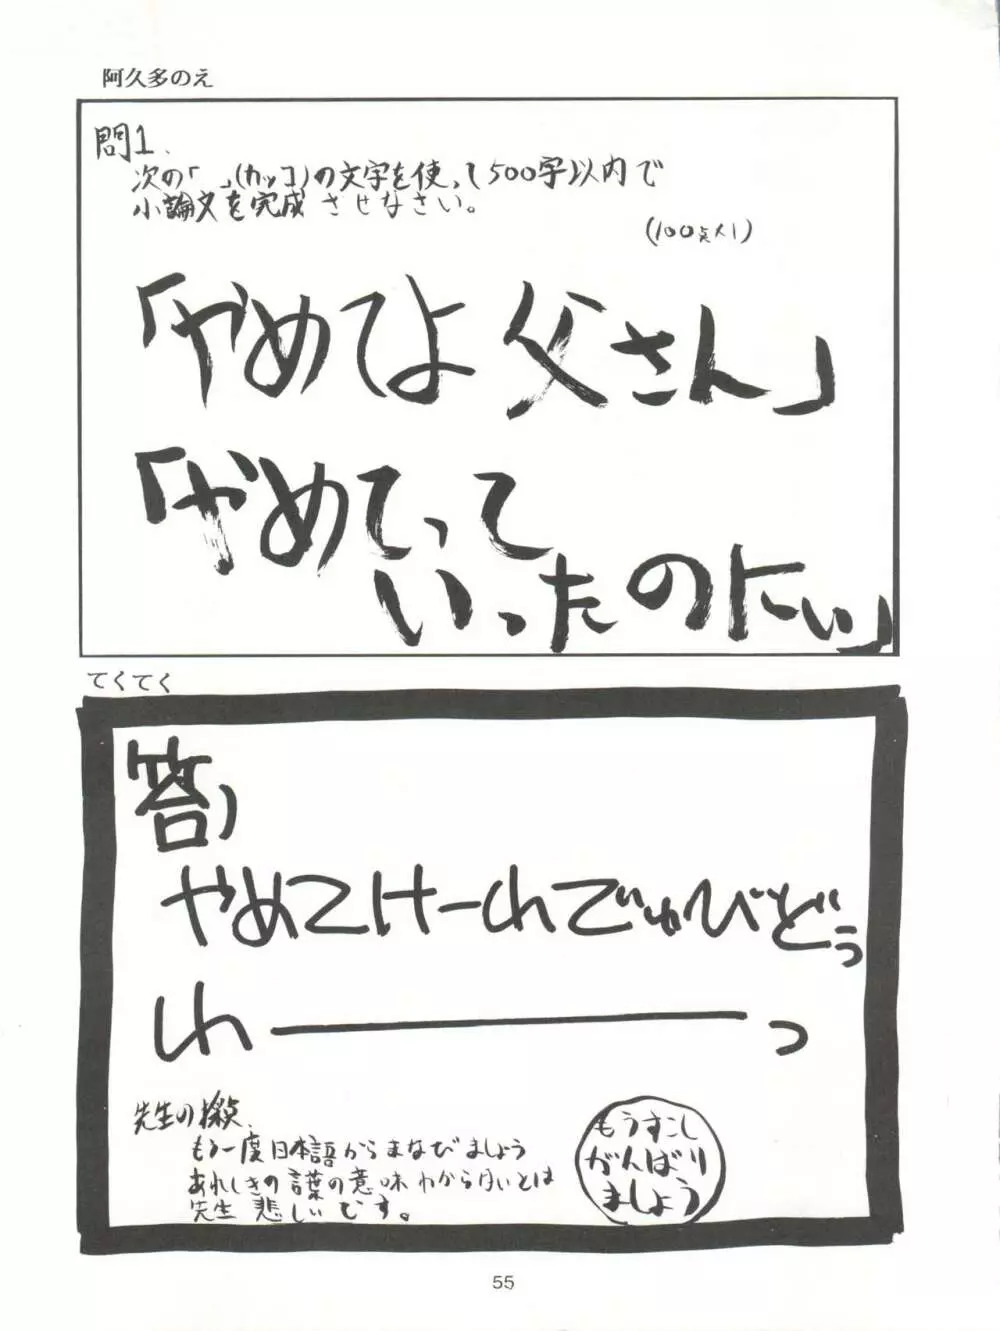 阿久多のえ
問1.
次の「 」(カッコ)の文字を使って500字以内で
小論文を完成させなさい。
(100点×1)
「やめてよ父さん」
「やめてって
いったのにぃ」
てくてく
答)
やめてけーれでぃゅびどぅ
れ――――っ
先生の採点.
もう一度日本語からまなびましょう
あれしきの言葉の意味わからないとは
先生悲しいです。
もうすこし
がんばり
ましょう
55